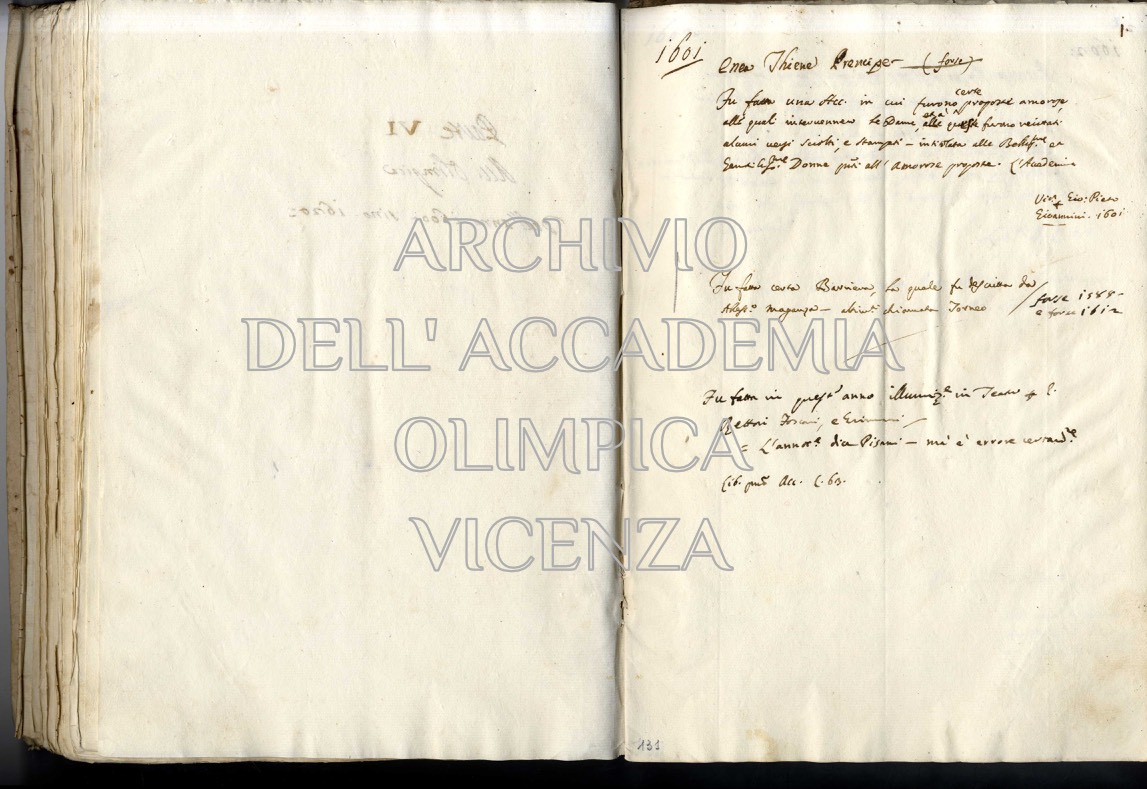 Parte VI
Atti Olimpici
1600 sino 1620
1
1601
Enea Thiene Prencipe (forse)
Fu fatta una Acc. in cui furono certe proposte amorose,
alle quali intervennero le Dame, furono recitati
alcuni versi sciolti, e stampati - intitolata alle Belliss.me et
Gentiliss.me Donne all' amorose proposte. L'Academia
Vic.a Gio: Pietro
Giovannini. 1601
Fu fatta certa Barriera, la quale fu descritta da
Aless.o Maganza - chiamata Torneo
forse 1588-
e forse 1612
Fu fatta in quest'anno illuminaz.e in Teatro
Rettori Foscari, e
= L'annot.e dice Pisani - mà è errore
Lib. Acc. C. 63.
131
ARCHIVIO
DELL' ACCADEMIA
OLIMPICA
VICENZA